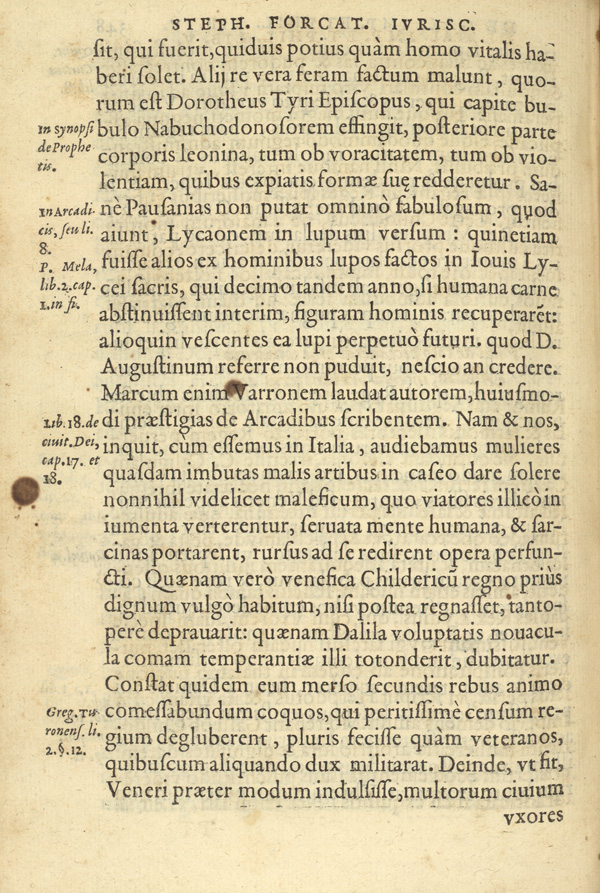 STEPH. FORCAT. IVRISC.
ſit, qui fuerit, quiduis potius quàm homo vitalis ha-
beri ſolet. Alij re vera feram factum malunt, quo-
rum eſt Dorotheus Tyri Epiſcopus, qui capite bu-
In synopſi
de Prophe
tis.
bulo Nabuchodonoſorem effingit, poſteriore parte
corporis leonina, tum ob voracitatem, tum ob vio-
lentiam, quibus expiatis formæ ſuę redderetur. Sa-
In Arcadi-
cis, ſeu li.
8.
nè Pauſanias non putat omninò fabuloſum, quod
aiunt, Lycaonem in lupum verſum: quinetiam
P. Mela,
lib. 2. cap.
1. in fi.
fuiſſe alios ex hominibus lupos factos in Iouis Ly-
cei ſacris, qui decimo tandem anno, ſi humana carne
abſtinuiſſent interim, figuram hominis recuperarẽt:
alioquin veſcentes ea lupi perpetuò futuri. quod D.
Auguſtinum referre non puduit, neſcio an credere.
Marcum enim Varronem laudat autorem, huiuſmo-
Lib. 18. de
ciuit. Dei,
cap. 17. et
18.
di præſtigias de Arcadibus ſcribentem. Nam & nos,
inquit, cùm eſſemus in Italia, audiebamus mulieres
quaſdam imbutas malis artibus in caſeo dare ſolere
nonnihil videlicet maleficum, quo viatores illicò in
iumenta verterentur, ſeruata mente humana, & ſar-
cinas portarent, rurſus ad ſe redirent opera perfun-
cti. Quænam verò venefica Childericũ regno priùs
dignum vulgò habitum, niſi poſtea regnaſſet, tanto-
perè deprauarit: quænam Dalila voluptatis nouacu-
la comam temperantiæ illi totonderit, dubitatur.
Conſtat quidem eum merſo ſecundis rebus animo
Greg. Tu-
ronenſ. li.
2. §. 12.
comeſſabundum coquos, qui peritiſſimè cenſum re-
gium degluberent, pluris feciſſe quàm veteranos,
quibuſcum aliquando dux militarat. Deinde, vt fit,
Veneri præter modum indulſiſſe, multorum ciuium
vxores